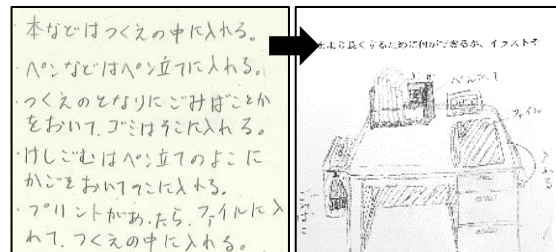 ・本などはつくえの中に入れる。
・ペンなどはペン立てに入れる。
・つくえのとなりにごみばことか
をおいて、ゴミはそこに入れる。
・けしごむはペン立てのよこに
かごをおいてそこに入れる。
・プリントがあったら、ファイルに入
れて、つくえの中に入れる。
より良くするために何ができるか、イラストを
ファイル
入れる